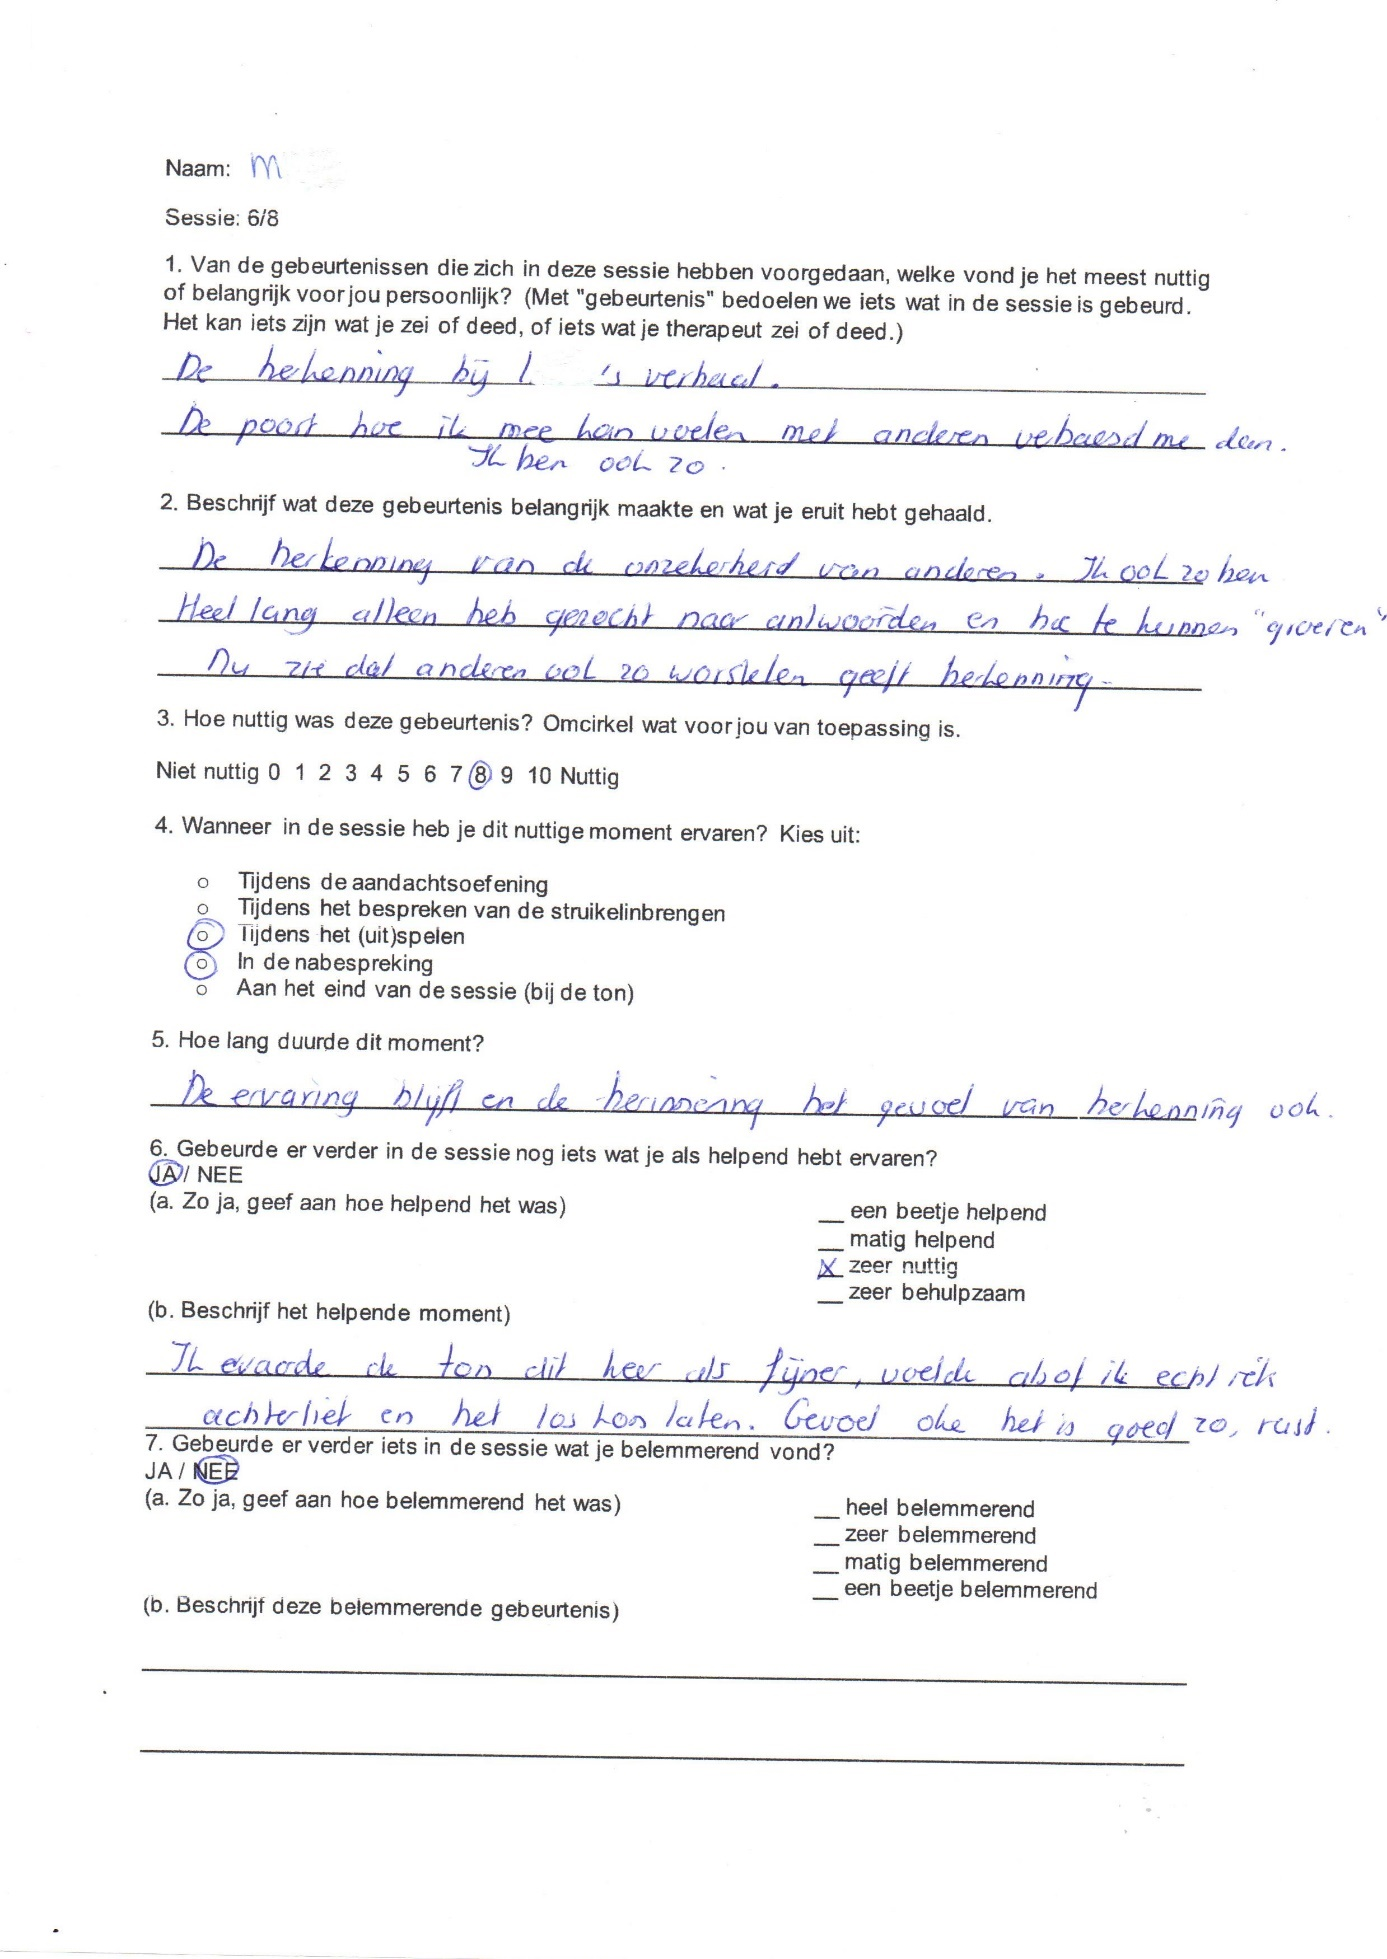 Naam: M
Sessie: 6/8
1. Van de gebeurtenissen die zich in deze sessie hebben voorgedaan, welke vond je het meest nuttig
of belangrijk voor jou persoonlijk? (Met "gebeurtenis" bedoelen we iets wat in de sessie is gebeurd.
Het kan iets zijn wat je zei of deed, of iets wat je therapeut zei of deed.)
De herkenning bij L 's verhaal.
De poort hoe ik mee kan voelen met anderen verbaasd me dan.
Ik ben ook zo.
2. Beschrijf wat deze gebeurtenis belangrijk maakte en wat je eruit hebt gehaald.
De herkenning van de onzekerheid van anderen. Ik ook zo ben
Heel lang alleen heb gezocht naar antwoorden en hoe te kunnen "groeren"
Nu zie dat anderen ook zo worstelen geeft herkenning-
3. Hoe nuttig was deze gebeurtenis? Omcirkel wat voor jou van toepassing is.
Niet nuttig 0 1 2 3 4 5 6 7 8 9 10 Nuttig
4. Wanneer in de sessie heb je dit nuttige moment ervaren? Kies uit:
Tijdens de aandachtsoefening
Tijdens het bespreken van de struikelinbrengen
Tijdens het (uit)spelen
In de nabespreking
Aan het eind van de sessie (bij de ton)
5. Hoe lang duurde dit moment?
De ervaring blijft en de herinnering het gevoel van herkenning ook.
6. Gebeurde er verder in de sessie nog iets wat je als helpend hebt ervaren?
JA / NEE
(a. Zo ja, geef aan hoe helpend het was)
__ een beetje helpend
__ matig helpend
X zeer nuttig
__ zeer behulpzaam
(b. Beschrijf het helpende moment)
Ik evaarde de ton dit keer als fijner, voelde alsof ik echt iets
achterliet en het los kon laten. Gevoel oke het is goed zo, rust.
7. Gebeurde er verder iets in de sessie wat je belemmerend vond?
JA / NEE
(a. Zo ja, geef aan hoe belemmerend het was)
__ heel belemmerend
__ zeer belemmerend
__ matig belemmerend
__ een beetje belemmerend
(b. Beschrijf deze belemmerende gebeurtenis)